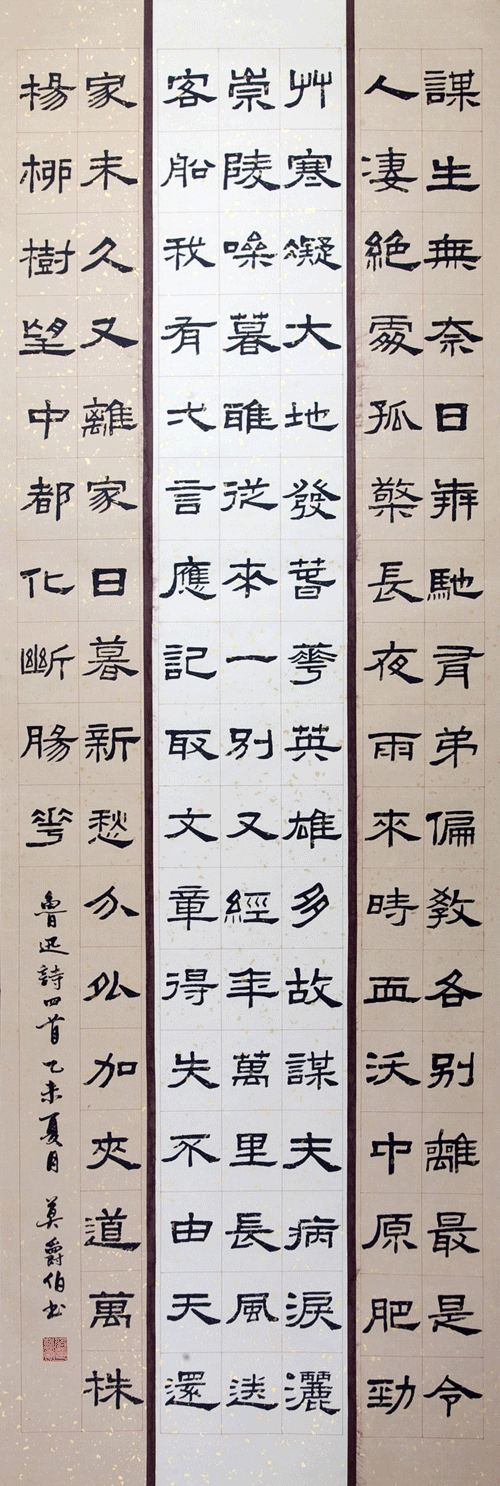 謀生無奈日奔馳有弟偏教各別離最是令
人凄絕處孤檠長夜雨來時血沃中原肥勁
艸寒凝大地發春華英雄多故謀夫病淚灑
崇陵噪暮雅從來一別又經年萬里長風送
客船我有弌言應記取文章得失不由天還
家未久又離家日暮新愁分外加夾道萬株
楊柳樹望中都化斷腸花
魯迅詩四首 乙未夏月 莫爵伯書